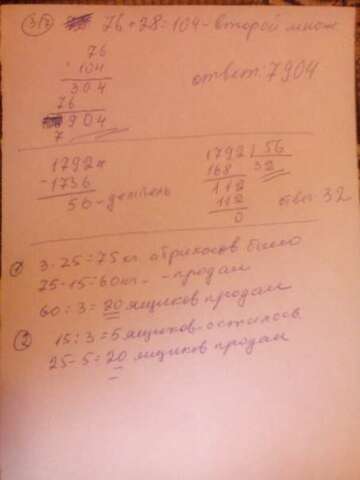 317 76+28=104-второй множ
76
104
304
76
7904
ответ: 7904
1792
-1736
56-делитель
1792 | 56
168 32
112
112
0
ответ 32
① 3·25=75 кг абрикосов было
75-15=60 кг - продали
60:3=20 ящиков продали
② 15:3=5 ящиков осталось
25-5=20 ящиков продали